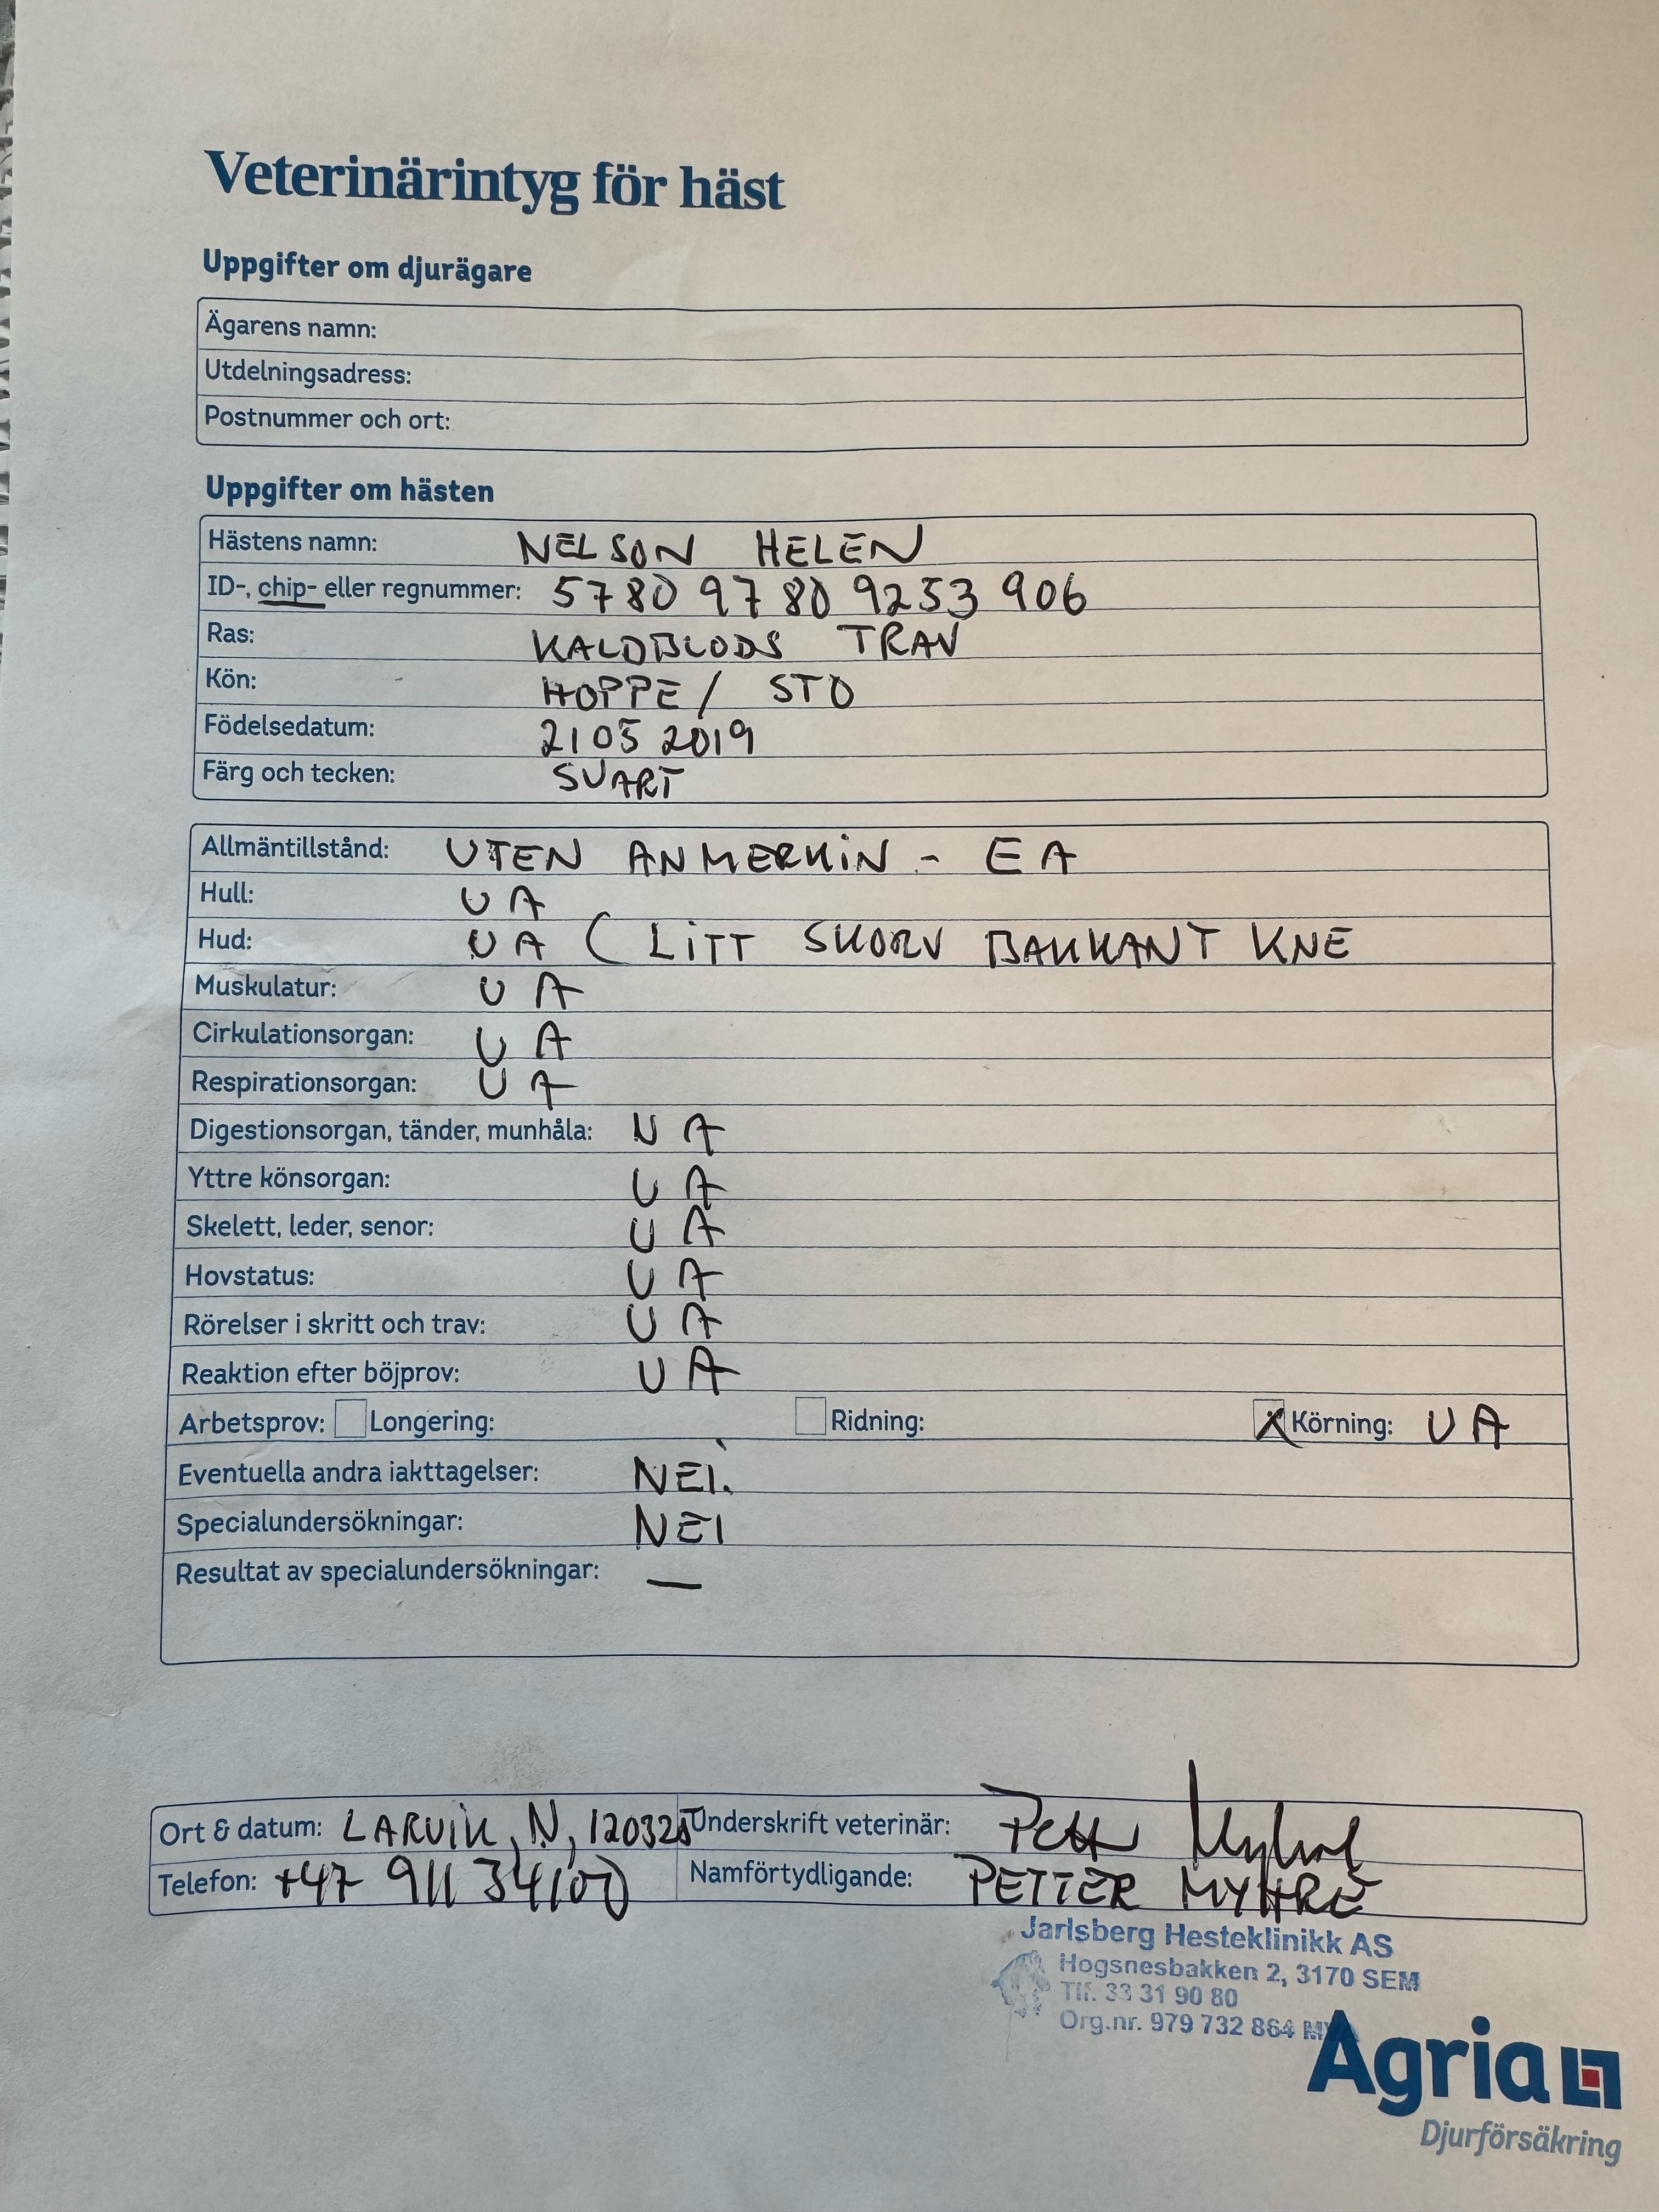 Veterinärintyg för häst
Uppgifter om djurägare
Ägarens namn:
Utdelningsadress:
Postnummer och ort:
Uppgifter om hästen
Hästens namn: NELSON HELEN
ID-, chip- eller regnummer: 5780 97 80 9253 906
Ras: KALDBLODS TRAV
Kön: HOPPE / STO
Födelsedatum: 21 05 2019
Färg och tecken: SVART
Allmäntillstånd: UTEN ANMERKIN - EA
Hull: UA
Hud: UA ( LITT SKORV BAKKANT KNE
Muskulatur: UA
Cirkulationsorgan: UA
Respirationsorgan: UA
Digestionsorgan, tänder, munhåla: UA
Yttre könsorgan: UA
Skelett, leder, senor: UA
Hovstatus: UA
Rörelser i skritt och trav: UA
Reaktion efter böjprov: UA
Arbetsprov: Longering: Ridning: X Körning: UA
Eventuella andra iakttagelser: NEI.
Specialundersökningar: NEI
Resultat av specialundersökningar: —
Ort & datum: LARVIK, N, 120325 Underskrift veterinär: Petter Myhre
Telefon: +47 911 34100 Namförtydligande: PETTER MYHRE
Jarlsberg Hesteklinikk AS
Hogsnesbakken 2, 3170 SEM
Tlf. 33 31 90 80
Org.nr. 979 732 864
Agria
Djurförsäkring